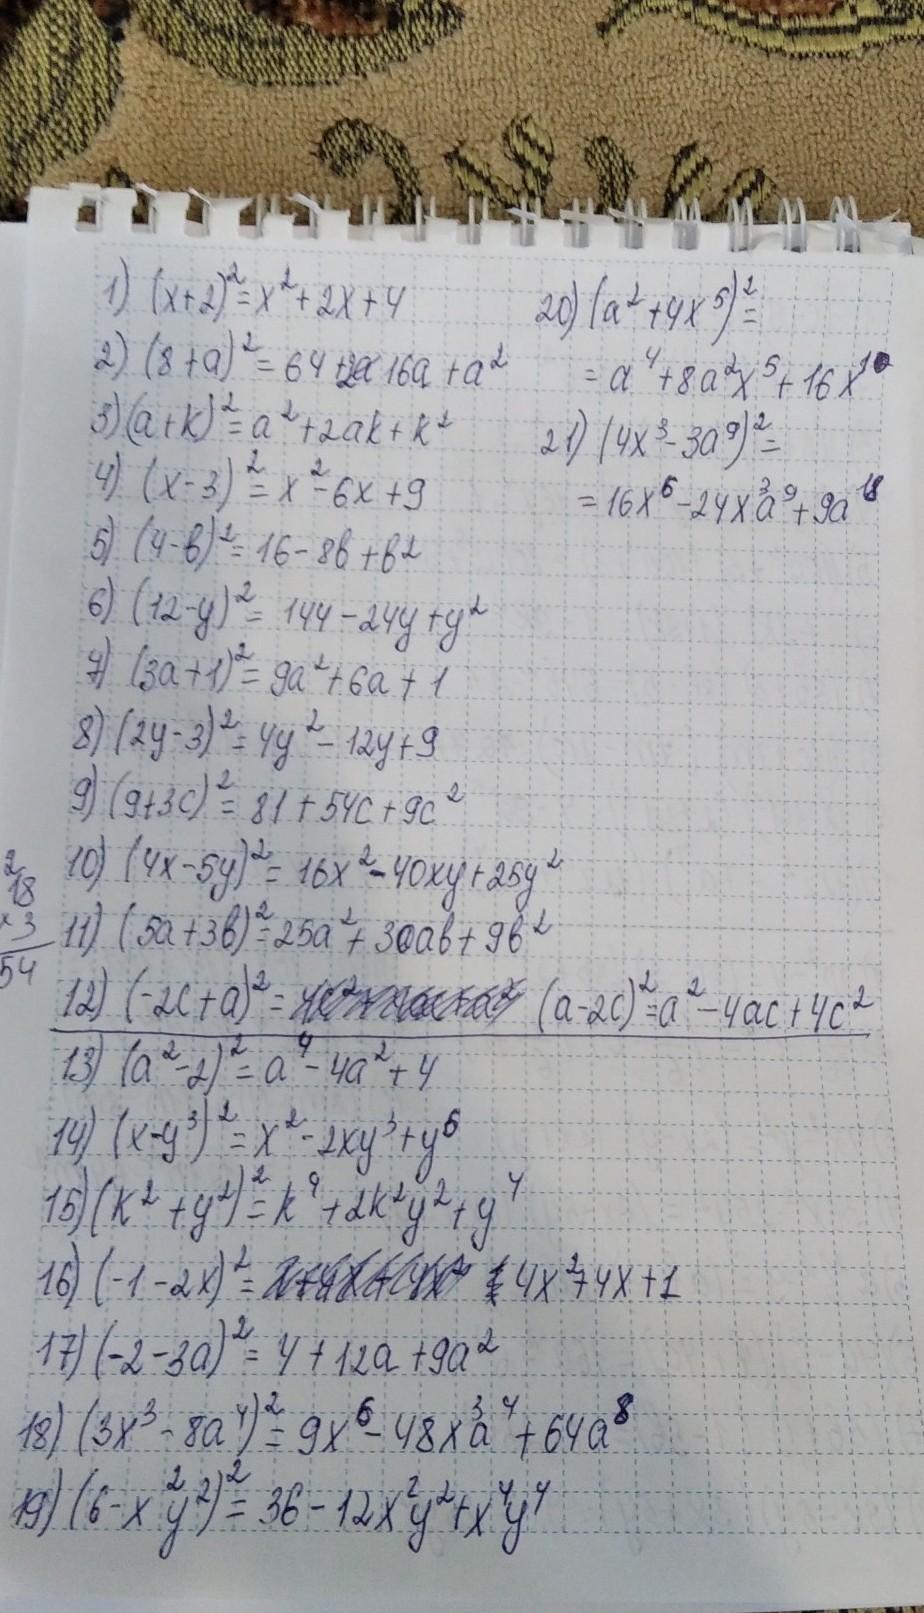 1) (x+2)²=x²+2x+4
2) (8+a)²=64+16a+a²
3) (a+k)²=a²+2ak+k²
4) (x-3)²=x²-6x+9
5) (4-b)²=16-8b+b²
6) (12-y)²=144-24y+y²
7) (3a+1)²=9a²+6a+1
8) (2y-3)²=4y²-12y+9
9) (9+3c)²=81+54c+9c²
10) (4x-5y)²=16x²-40xy+25y²
2
18
×3
54
11) (5a+3b)²=25a²+30ab+9b²
12) (-2c+a)²= (a-2c)²=a²-4ac+4c²
13) (a²-2)²=a⁴-4a²+4
14) (x-y³)²=x²-2xy³+y⁶
15) (k²+y²)²=k⁴+2k²y²+y⁴
16) (-1-2x)²= 4x²+4x+1
17) (-2-3a)²=4+12a+9a²
18) (3x³-8a⁴)²=9x⁶-48x³a⁴+64a⁸
19) (6-x²y²)²=36-12x²y²+x⁴y⁴
20) (a²+4x⁵)²=
=a⁴+8a²x⁵+16x¹⁰
21) (4x³-3a⁹)²=
=16x⁶-24x³a⁹+9a¹⁸